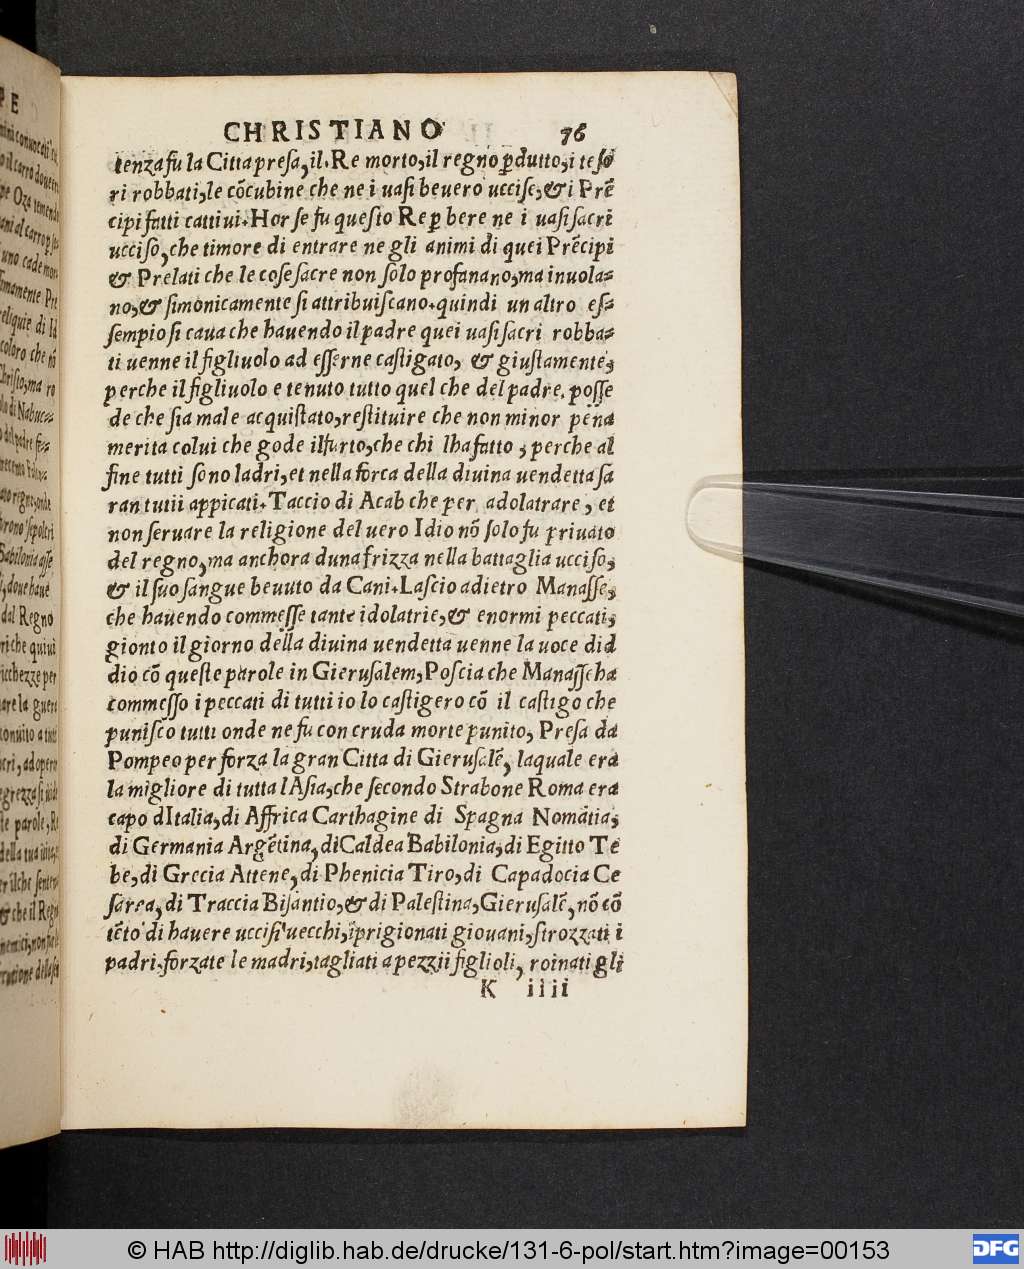 CHRISTIANO 76
tenza fu la Citta presa, il Re morto, il regno ꝑdutto, i teſo
ri robbati, le cõcubine che ne i uaſi beuero ucciſe, & i Prẽ
cipi fatti cattiui. Hor ſe fu queſto Re ꝑ bere ne i uaſi ſacri
ucciſo, che timore di entrare ne gli animi di quei Prẽcipi
& Prelati che le coſe ſacre non ſolo profanano, ma inuola=
no, & ſimonicamente ſi attribuiſcano. quindi un altro eſ=
ſempio ſi caua che hauendo il padre quei uaſi ſacri robba=
ti uenne il figliuolo ad eſſerne caſtigato, & giuſtamente,
perche il figliuolo e tenuto tutto quel che del padre. poſſe
de che ſia male acquiſtato, reſtituire che non minor pena
merita colui che gode il furto, che chi lha fatto, perche al
fine tutti ſono ladri, et nella forca della diuina uendetta ſa
ran tutii appicati. Taccio di Acab che per adolatrare, et
non ſeruare la religione del uero Idio nõ ſolo fu priuato
del regno, ma anchora duna frizza nella battaglia ucciſo,
& il ſuo ſangue beuuto da Cani. Laſcio adietro Manaſſe,
che hauendo commeſſe tante idolatrie, & enormi peccati,
gionto il giorno della diuina uendetta uenne la uoce did
dio cõ queſte parole in Gieruſalem, Poſcia che Manaſſe ha
commeſſo i peccati di tutti io lo caſtigero cõ il caſtigo che
puniſco tutti onde ne fu con cruda morte punito, Preſa da
Pompeo per forza la gran Citta di Gieruſalẽ, laquale era
la migliore di tutta lAſia, che ſecondo Strabone Roma era
capo dItalia, di Affrica Carthagine di Spagna Nomãtia,
di Germania Argẽtina, di Caldea Babilonia, di Egitto Te
be, di Grecia Attene, di Phenicia Tiro, di Capadocia Ce
ſarea, di Traccia Biſantio, & di Paleſtina, Gieruſalẽ, nõ cõ
tẽto di hauere ucciſi uecchi, ĩprigionati giouani, ſtrozzati i
padri, forzate le madri, tagliati a pezzii figlioli, roinati gli
K iiii
© HAB http://diglib.hab.de/drucke/131-6-pol/start.htm?image=00153
DFG